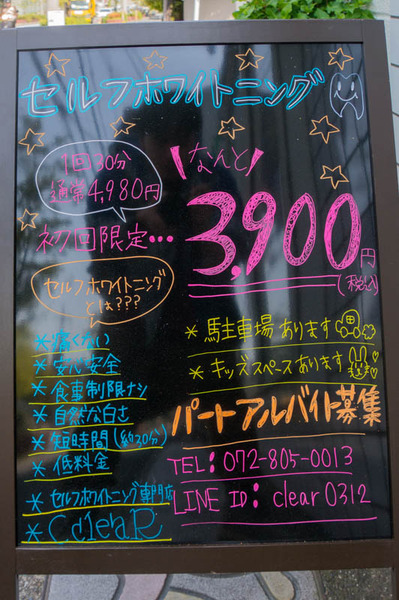 セルフホワイトニング
1回30分
通常4,980円
\なんと/
初回限定…
3,900円
(税込)
セルフホワイトニング
とは???
*痛くない
*安心安全
*食事制限ナシ
*自然な白さ
*短時間(約30分)
*低料金
*セルフホワイトニング専門店
*CcleaR
*駐車場あります
*キッズスペースあります
パートアルバイト募集
TEL:072-805-0013
LINE ID:clear0312